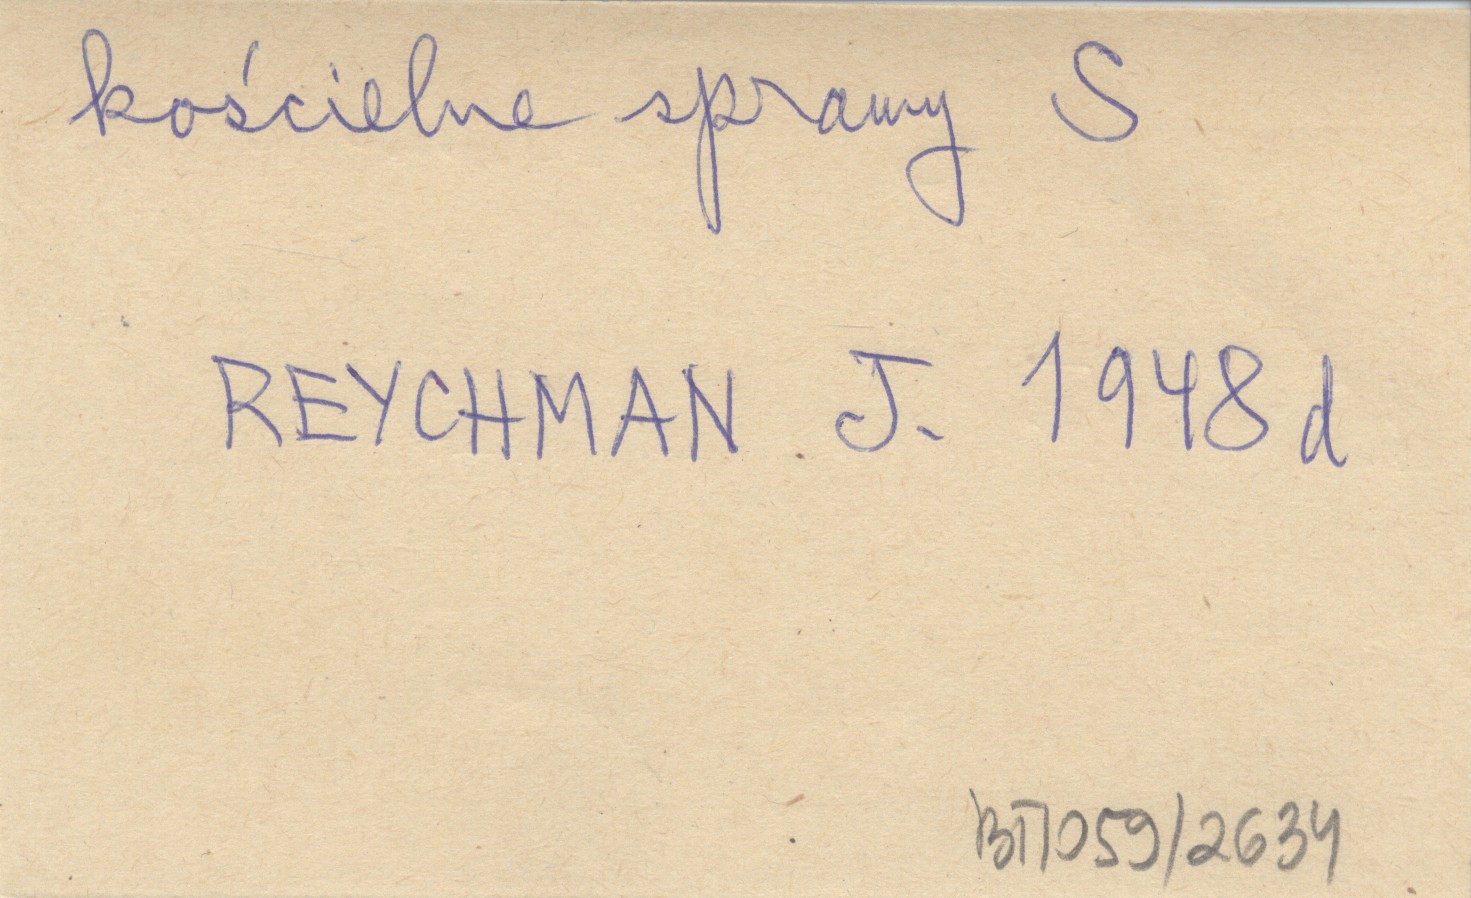 kościelne sprawy S
REYCHMAN J. 1948d
ВП059/2634